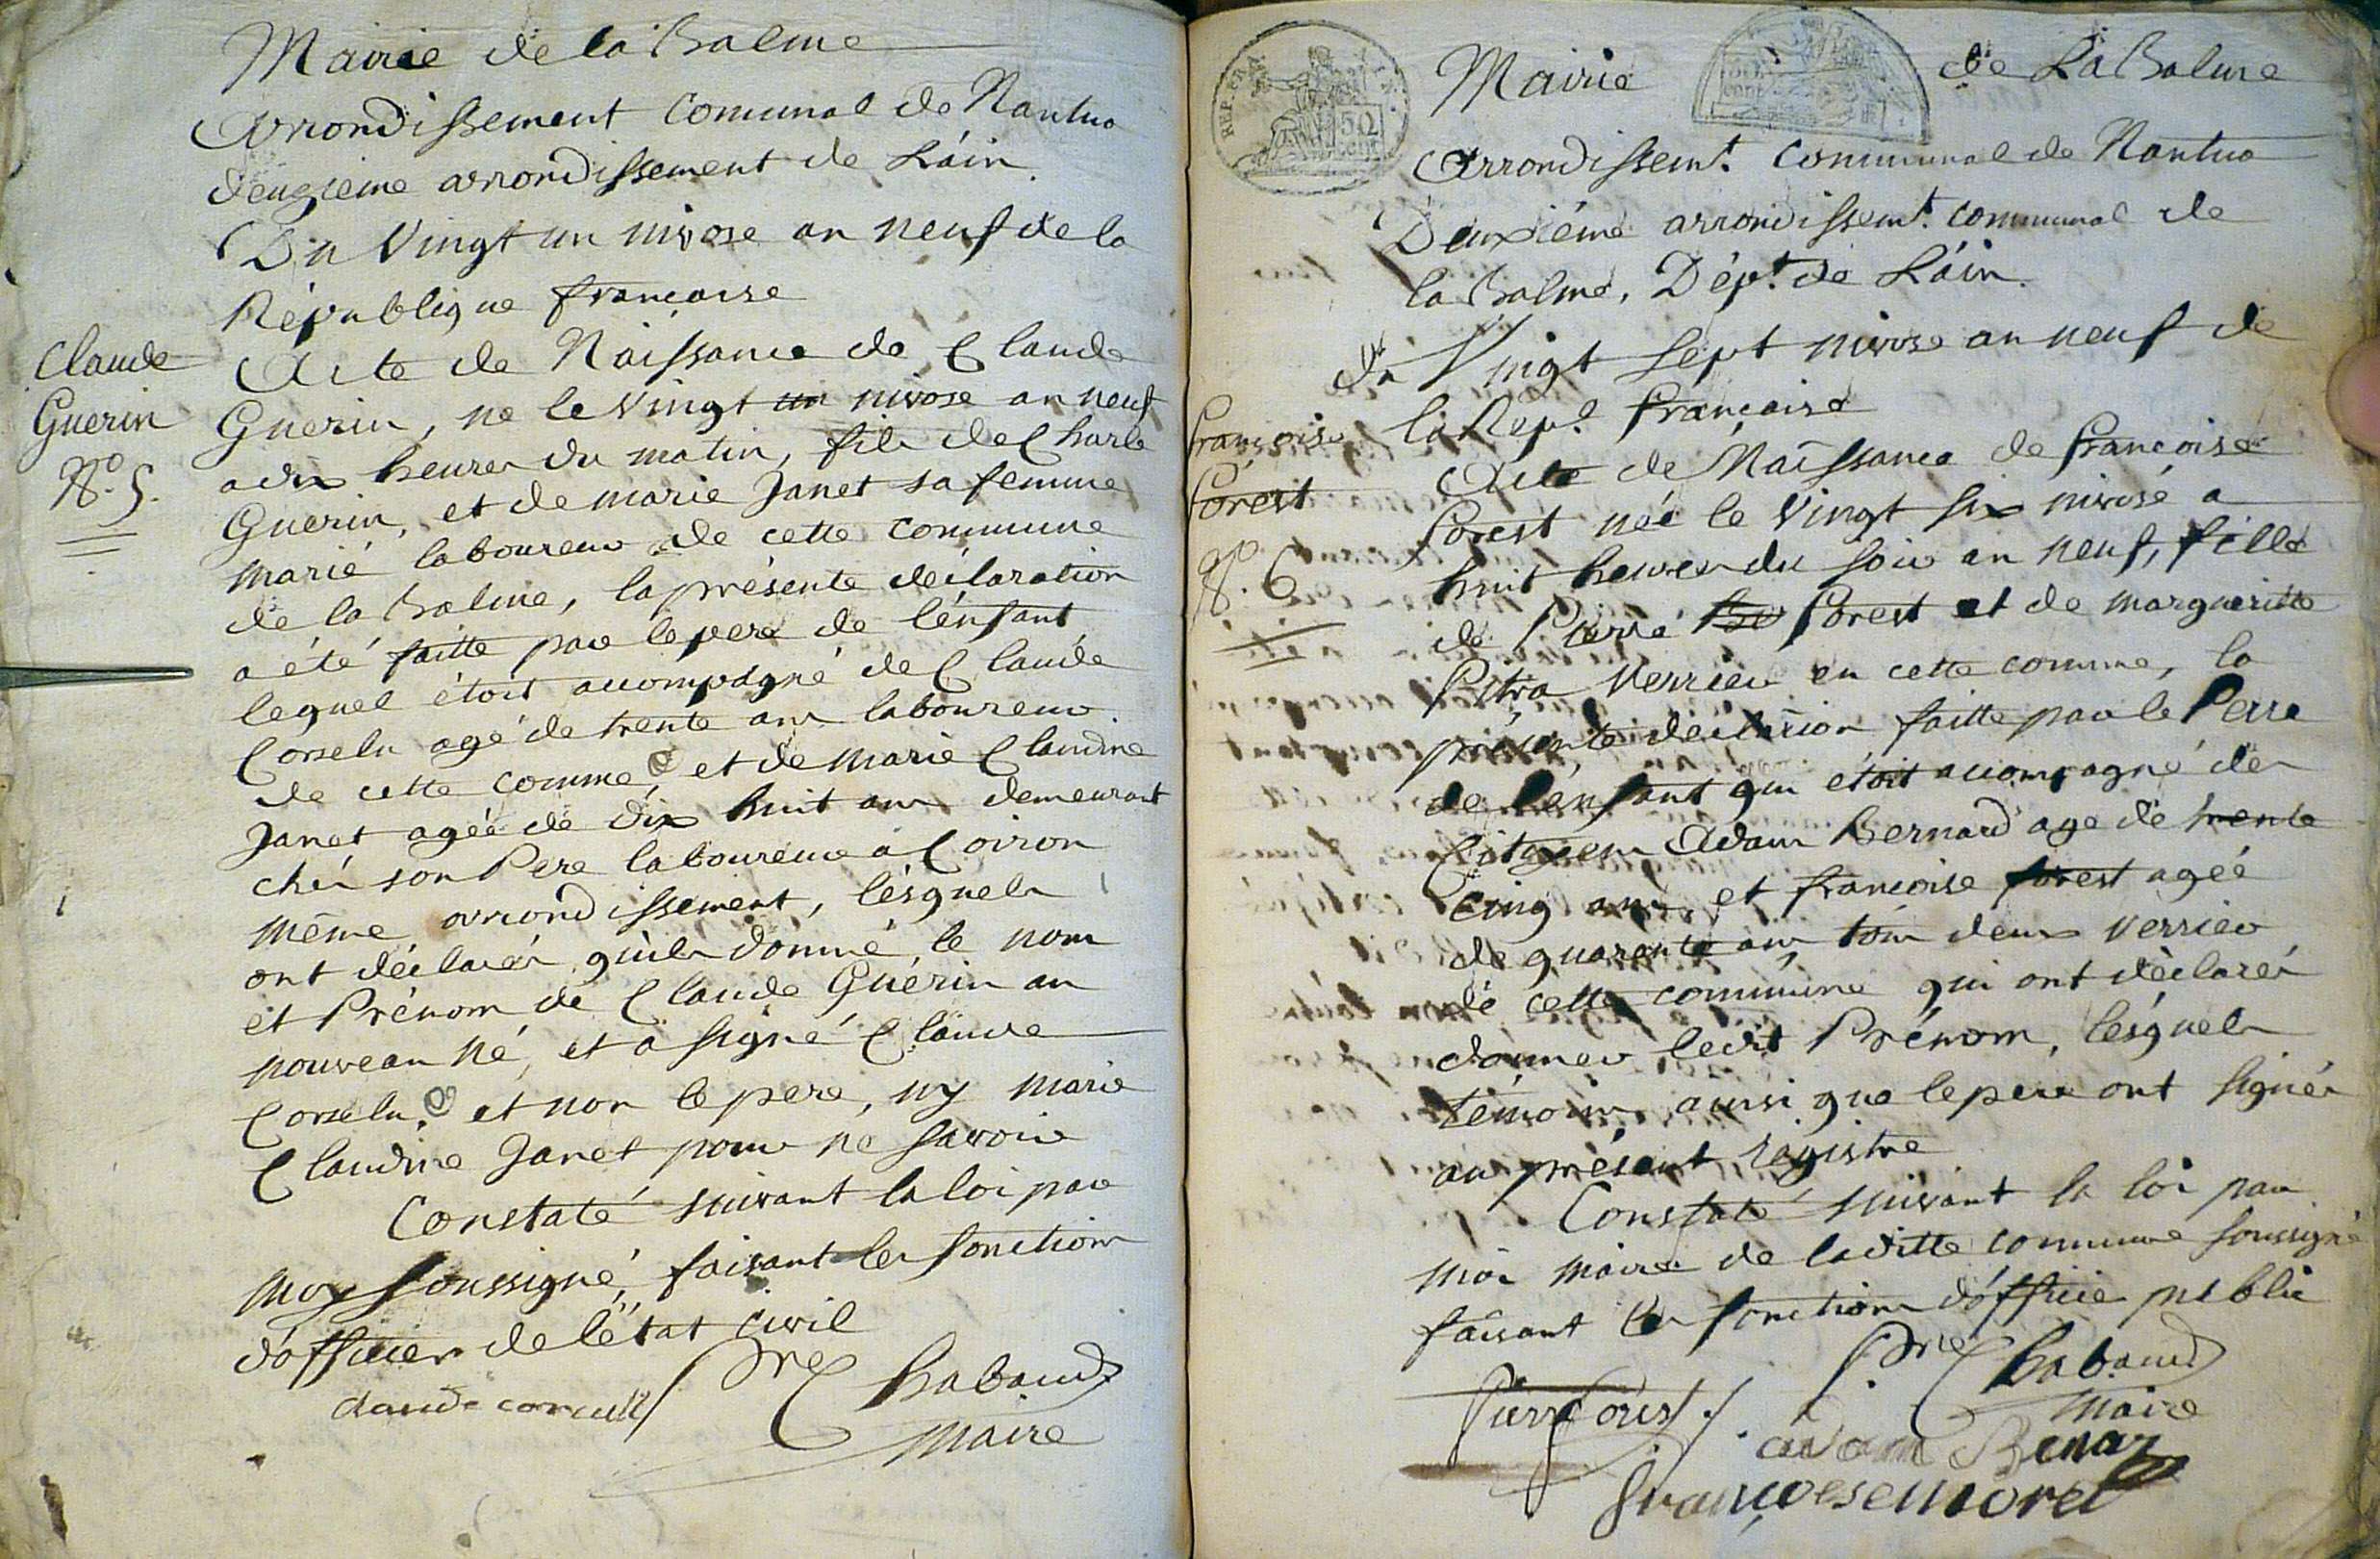 Mairie de la Balme
Arrondissement comunal de Nantua
deuzieme arrondissement de L'ain.
Du Vingt un nivose an neuf de la
République française
Claude
Guerin
N.° 5.
Acte de Naissance de Claude
Guerin, né le Vingt un nivose an neuf
a dix heures du matin, fils de Charle
Guerin, et de marie Janet sa femme
marié laboureur de cette commune
de la Balme, la présente déclaration
a été faitte par le pere de l'énfant
lequel étoit accompagné de Claude
Corselu agé de trente ans laboureur
de cette comme, et de Marie Claudine
Janet agée de dix huit ans demeurant
chés son Pere laboureur a Coiron
même arrondissement, lésquels
ont déclarés qu'ils donné le nom
et Prénom de Claude Guérin au
nouveau né, et a signé Claude
Corselu, et non le pere, ny Marie
Claudine Janet pour ne savoir
Constaté suivant la loi par
moy soussigné, faisant les fonctions
d'officier de l'état civil
claude
Chabaud
maire
REP. FRA.
50
cent
Mairie de La Balme
Arrondissem.t communal de Nantua
Deuxiéme arrondissem.t communal de
la Balme, Dép.t de L'áin.
du Vingt sept nivose an neuf de
la Rep.e française
françoise
forest
N.° 6
Acte de Naissance de françoise
forest née le Vingt six nivosé a
huit heures du soir an neuf, fille
de Pierre forest et de margueritte
Pitra Verrier en cette comme, la
présente déclarãion faitte par le Perre
de l'enfant qui étoit accompagné des
Citoyens Adam Bernard age de trente
cinq ans, et françoise forest agéé
de quarente ans tous deux Verrier
de cette commune qui ont déclarés
donner ledit Prénom, lésquels
témoins ainsi que le pere ont signés
au présent régistre
Constaté suivant la loi par
moi maire de laditte commune soussigné
faisant les fonctions d'officie public
Chabaud
maire
adam Benaz